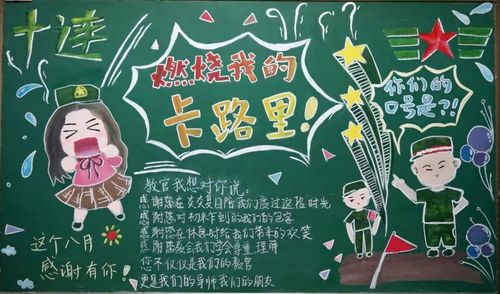 十连
燃烧我的
卡路里!
你们的
口号是?!
教官我想对你说:
感谢您在炎炎夏日陪我们度过这段时光
感谢您对初来乍到的我们的包容
感谢您在休息时给我们带来的欢笑
感谢您教会我们学会尊重,理解
您不仅仅是我们的教官
更是我们的导师我们的朋友
这个八月
感谢有你!